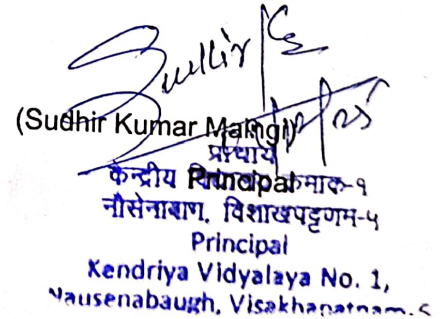 Sudhir K
(Sudhir Kumar Maingi)
प्राचार्य
Principal
केन्द्रीय विद्यालय क्रमांक-१
नौसेनाबाग, विशाखपट्टणम-५
Principal
Kendriya Vidyalaya No. 1,
Nausenabaugh, Visakhapatnam-5